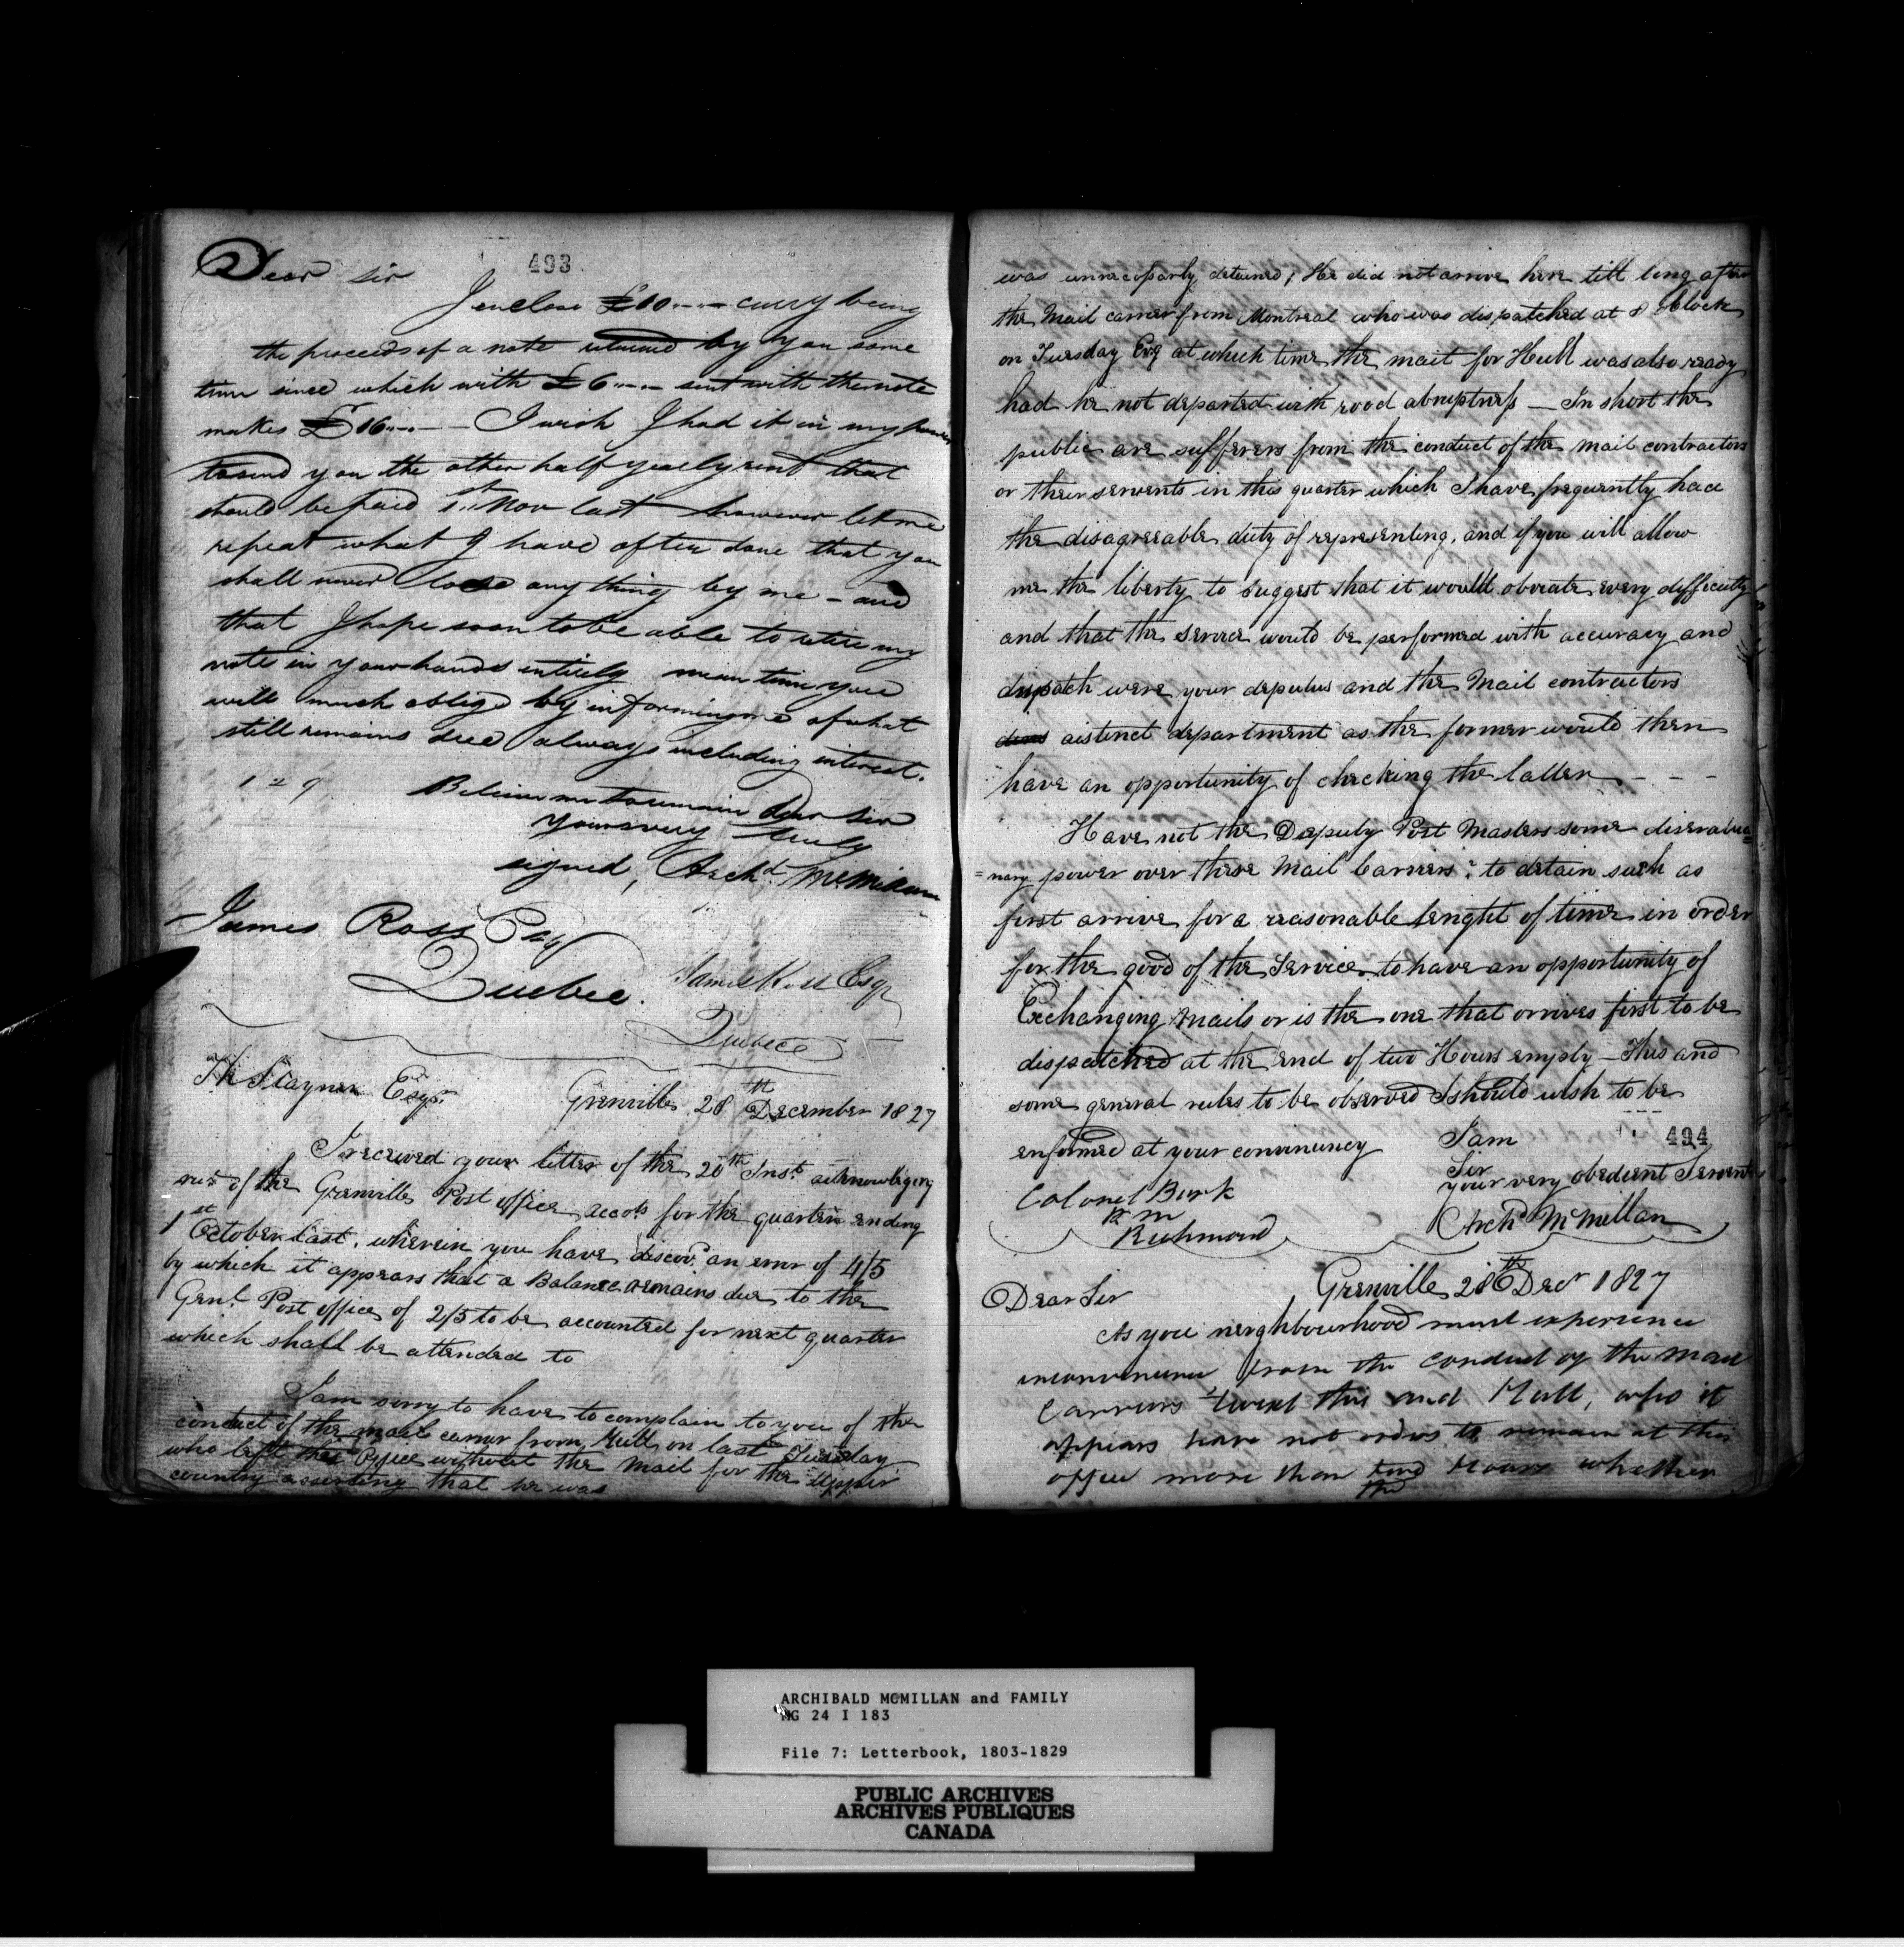 493
Dear Sir
I enclose £10..... curry being
the proceeds of a note returned by you some
time since which with £6..... sent with the note
makes £16..... — I wish I had it in my power
to send you the other half yearly rent that
should be paid 1st Nov last however let me
repeat what I have often done that you
shall never lose any thing by me – and
that I hope soon to be able to retire my
note in your hands entirely mean time you
will much oblige by informing me of what
still remains due always including interest.
129
Believe me to remain Dear Sir
yours very truly
signed, Archd. McMillan
James Ross Esqr
Quebec.
James Ross Esqr
Quebec
Th Stayner Esqr.
Grenville 28th December 1827
I received your letter of the 20th Inst. acknowleging
rect. of the Grenville Post office accots for the quarter ending
1st October last, wherein you have discovd. an error of 4/5
by which it appears that a Balance remains due to the
Genl. Post office of 2/5 to be accounted for next quarter
which shall be attended to
I am sorry to have to complain to you of the
conduct of the mail carrier from Hull on last Tuesday
who left this Office without the Mail for the Upper
country asserting that he was
was unnecessarly detained; He did not arrive here till long after
the Mail carrier from Montreal who was dispatched at 8 oClock
on Tuesday Evg at which time the mail for Hull was also ready
had he not departed with rood abruptness — In short the
public are sufferers from the conduct of the Mail contractors
or their servents in this quarter which I have frequently had
the disagreeable duty of representing, and if you will allow
me the liberty to suggest that it would obviate every difficulty
and that the service would be performed with accuracy and
dispatch were your deputes and the Mail contractors
distinct department as the former would then
have an opportunity of checking the latter - - -
Have not the Deputy Post Masters some
=nary power over these Mail Carriers? to detain such as
first arrive for a reasonable lenght of time in order
for the good of the Service to have an opportunity of
Exchanging Mails or is the one that arrives first to be
dispatched at the end of two Hours empty — This and
some general rules to be observed I should wish to be
enformed at your convinuncy
I am
494
Sir
your very obedient Servent
Archd McMillan
Colonel Burk
P M
Richmond
Grenville 28th Decr 1827
Dear Sir
As you neighbourhood must experience
inconvenience from the conduct of the mail
Carriers 'twixt this and Hull, who it
appears have not orders to remain at this
office more than two Hours whether
the
ARCHIBALD MCMILLAN and FAMILY
MG 24 I 183
File 7: Letterbook, 1803-1829
PUBLIC ARCHIVES
ARCHIVES PUBLIQUES
CANADA